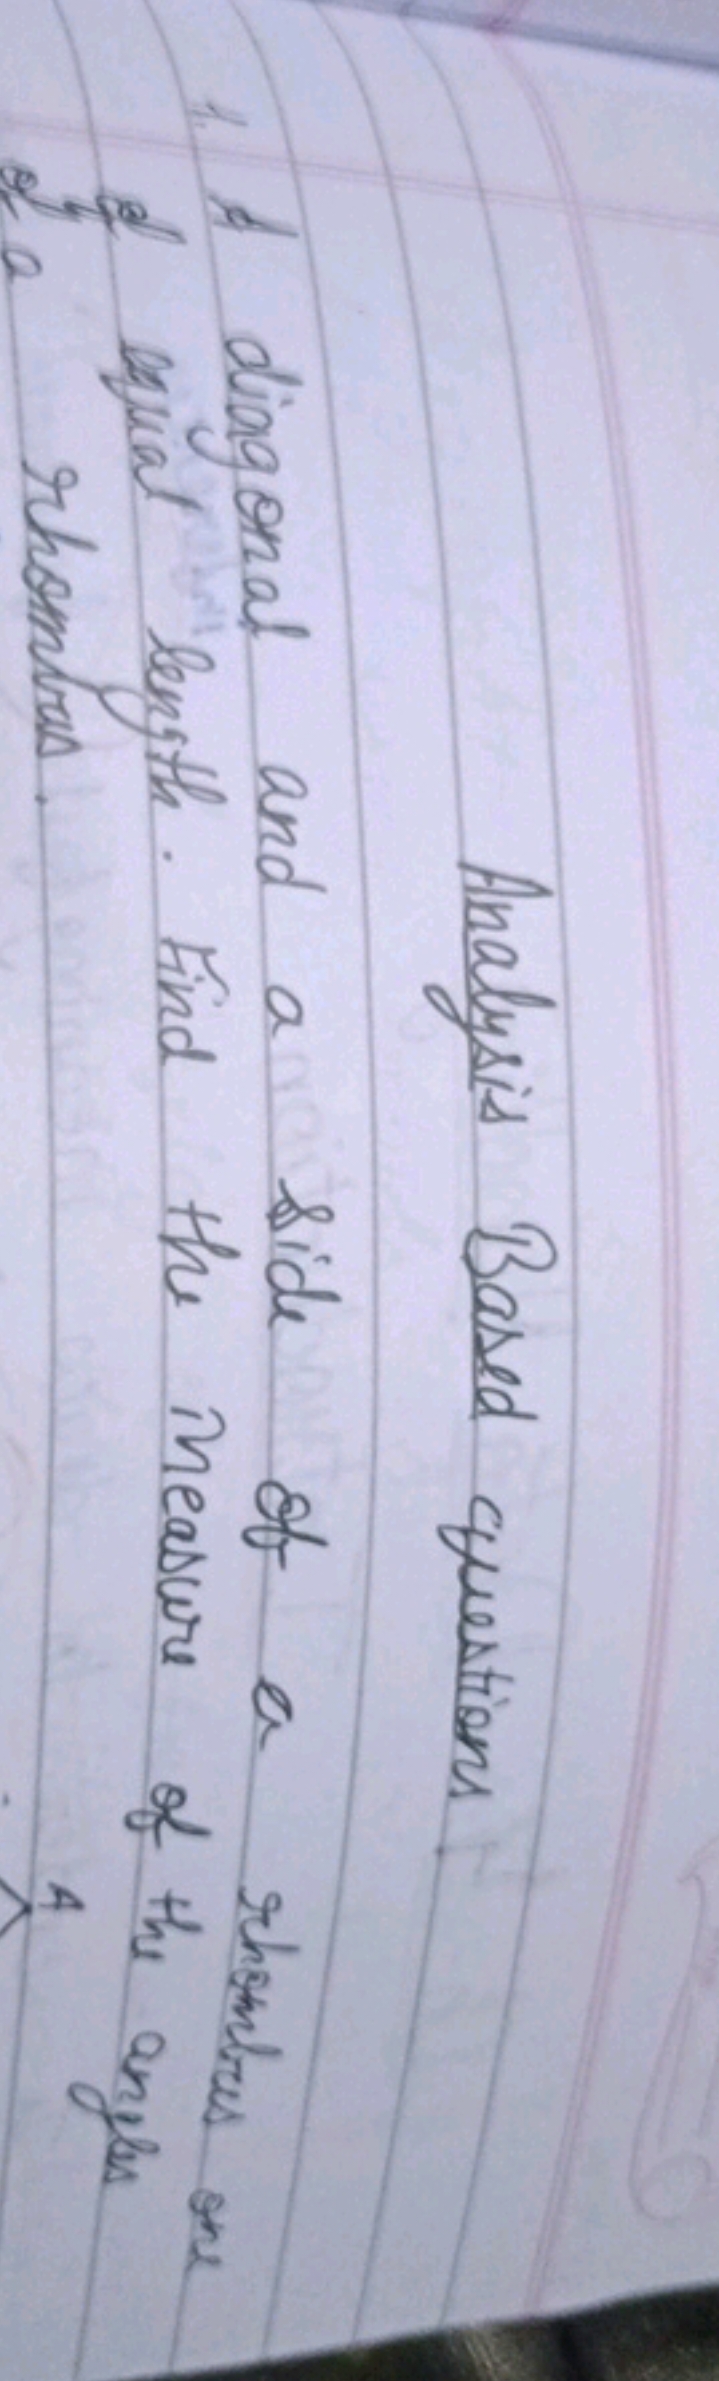 Analysis Based questions
1. A diagonal and a side of a rhombus one
of equal length. Find the measure of the angles
of a rhombus.
A